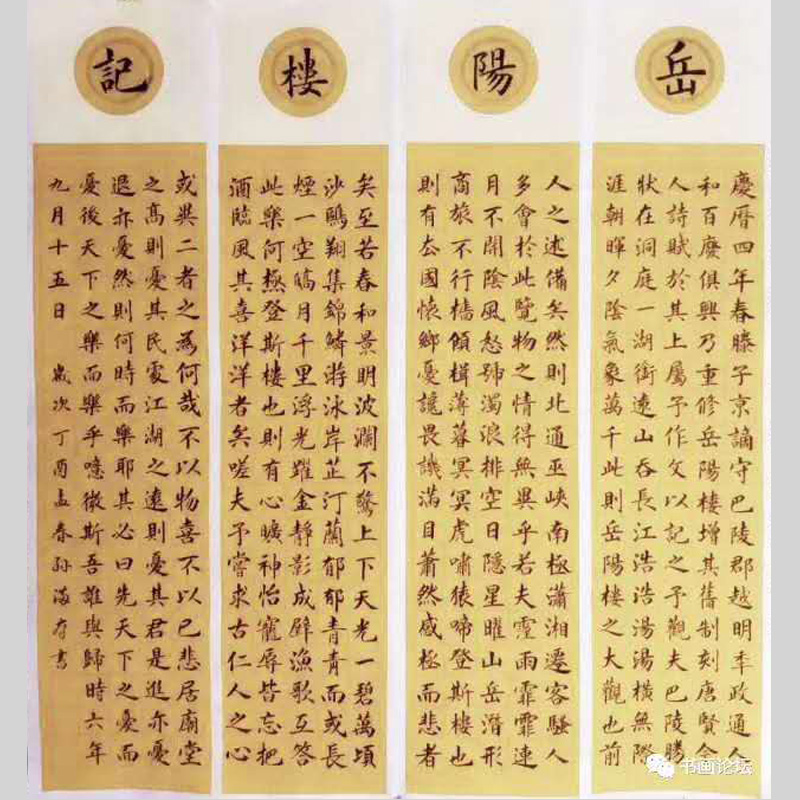 岳
慶曆四年春滕子京謫守巴陵郡越明年政通人
和百廢俱興乃重修岳陽樓增其舊制刻唐賢今
人詩賦於其上屬予作文以記之予觀夫巴陵勝
狀在洞庭一湖銜遠山吞長江浩浩湯湯橫無際
涯朝暉夕陰氣象萬千此則岳陽樓之大觀也前
陽
人之述備矣然則北通巫峽南極瀟湘遷客騷人
多會於此覽物之情得無異乎若夫霪雨霏霏連
月不開陰風怒號濁浪排空日隱星曜山岳潛形
商旅不行檣傾楫薄暮冥冥虎嘯猿啼登斯樓也
則有去國懷鄉憂讒畏譏滿目蕭然感極而悲者
樓
矣至若春和景明波瀾不驚上下天光一碧萬頃
沙鷗翔集錦鱗游泳岸芷汀蘭郁郁青青而或長
煙一空皓月千里浮光躍金靜影成璧漁歌互答
此樂何極登斯樓也則有心曠神怡寵辱皆忘把
酒臨風其喜洋洋者矣嗟夫予嘗求古仁人之心
記
或異二者之為何哉不以物喜不以己悲居廟堂
之高則憂其民處江湖之遠則憂其君是進亦憂
退亦憂然則何時而樂耶其必曰先天下之憂而
憂後天下之樂而樂乎噫微斯吾誰與歸時六年
九月十五日 歲次丁酉孟春孫海書
书画论坛